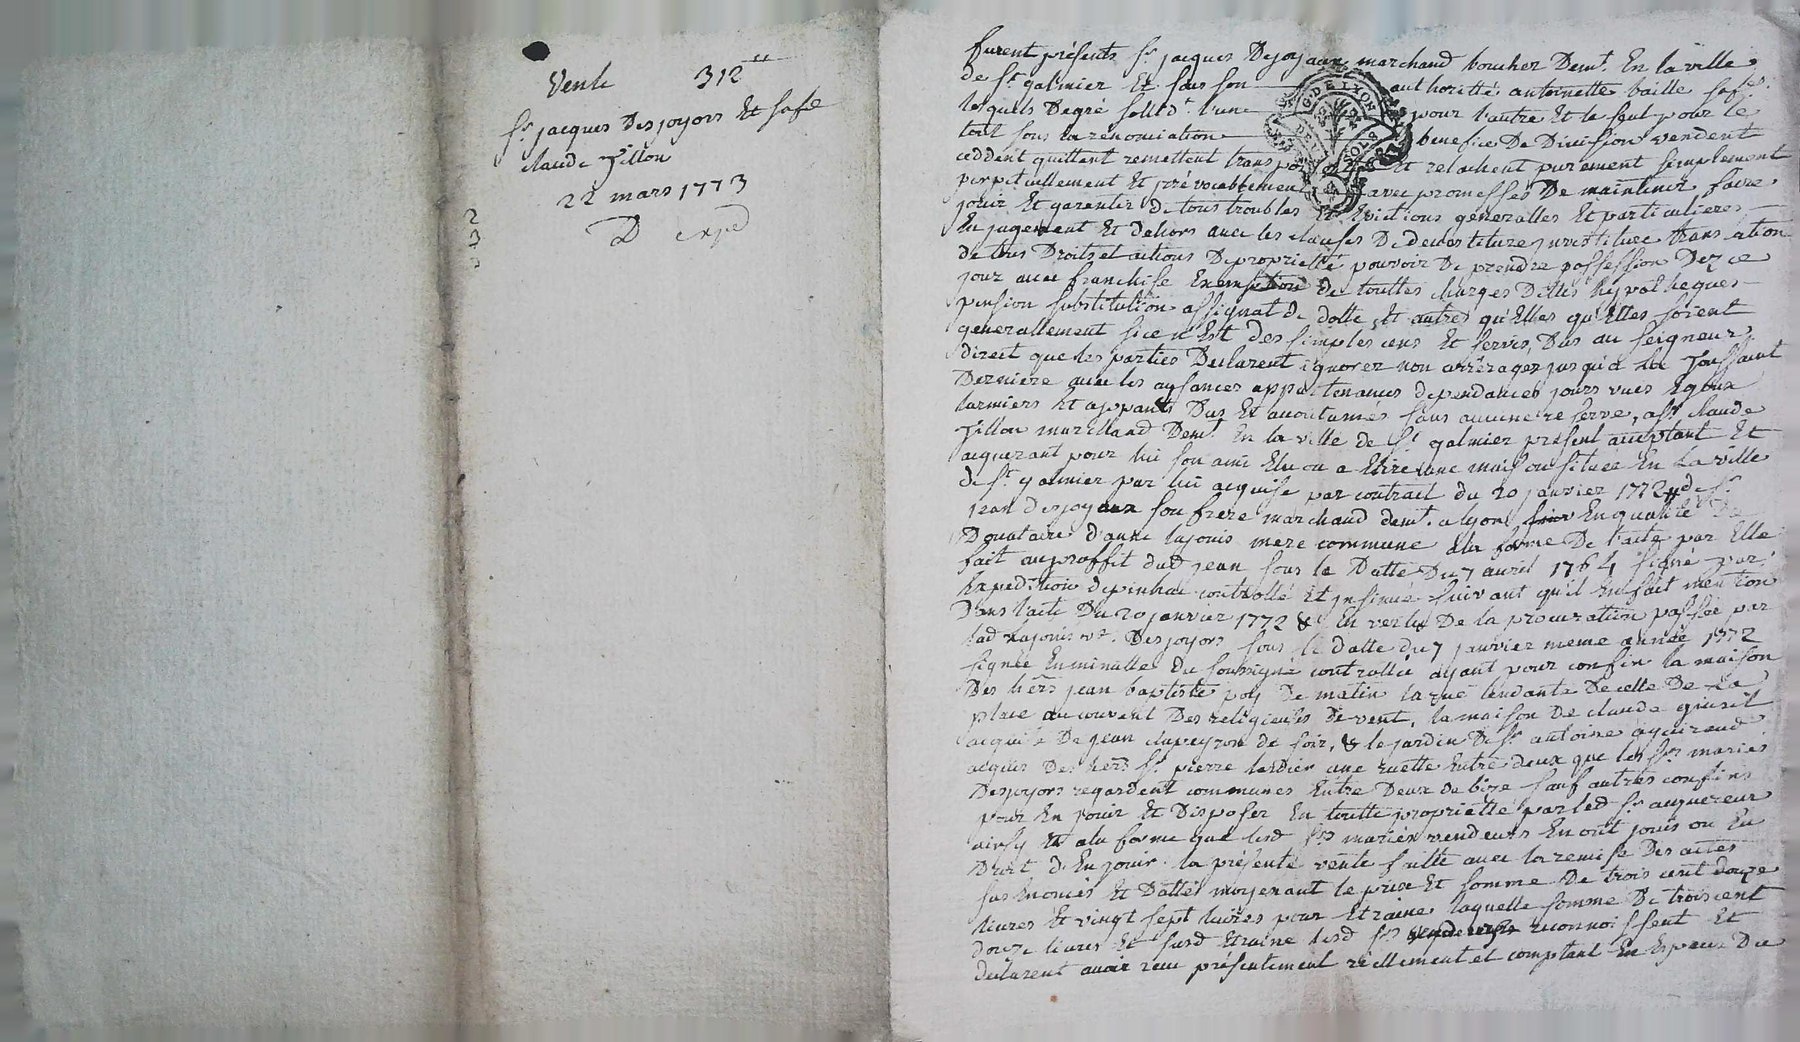 Vente 312"
Sr jacques Desjoyors Et sa fe
claude Tillon
22 mars 1773
D expd
furent présents Sr jacques Dejoyaux marchand boucher Demt. En la ville
de St galmier Et sous son authorité antoinette baille sa fe.
lesquels Degré sollidt l'une pour l'autre Et le seul pour le
tout sous la renonciation benefice De Division vendent
ceddent quittent remettent transpo Et relachent purement simplement
perpetuellement Et jrrévocablement avec promesses De maintenir faire
jouir Et garentir de tous troubles Et Evictions generalles Et particulieres
En jugement Et dehors avec les clauses De devestiture jnvestiture translation
de tous Droits et actions De proprietté pouvoir De prendre possession Dez ce
jour avec franchise Exemption de touttes charges Dettes hypotheques
pension substitution assignat de dotte, Et autres qu'Elles qu'Elles soient
generallement si ce n'Est des simples cens Et servis, Dus au seigneur
direct que les parties Declarent ignorer non arrérages jusqu'a la Toussaint
Derniere avec les aysances appartenances dependances jours vues Egoux
larmiers Et appants Dus Et accoutumés sans aucune reserve, a Sr claude
Tillon marchand Demt. En la ville de St galmier présent acceptant Et
acquerant pour lui son ami Elu ou a Elire une maison située En La ville
de St galmier par lui acquise par contrait du 20 janvier 1772 de Sr
jean desjoyaux son frere marchand demt. a lyon En qualité De
Donataire d'anne lajouis mere commune a la forme De l'acte par Elle
fait au proffit dud jean sous la Datte Du 7 avril 1764 signé par
Expedition depinhac controllé Et jnsinue suivant qu'il En fait mention
Dans l'acte Du 20 janvier 1772 & En vertu De la procuration passée par
lad lajouis ve. Desjoyors sous la datte du 7 janvier meme année 1772
signée En minutte Du soussigné controllée ayant pour confin la maison
Des hers jean baptiste poy De matin la rue tendante De celle De La
place au couvent Des religieuses De vent, la maison De claude
acquise De jean clapeyron de soir, & le jardin De Sr antoine
acquis Des hers Sr pierre une ruette Entre deux que les Srs mariés
Desjoyors regardent communes Entre Deux de bize sauf autres confins
pour En jouir Et Disposer En toutte proprietté par led Sr acquereur
ainsy Et a la forme que lesd Srs mariés vendeurs En ont jouis ou Eu
Droit d'En jouir. la présente vente faitte avec la remise Des actes
sus Enoncés Et Dattés moyenant le prix Et somme De trois cent douze
livres Et vingt sept livres pour Etraine laquelle somme De trois cent
douze livres Et susd Etraine lesd Srs vendeurs reconnoissent Et
declarent avoir recu présentement réellement et comptant En Especes Du